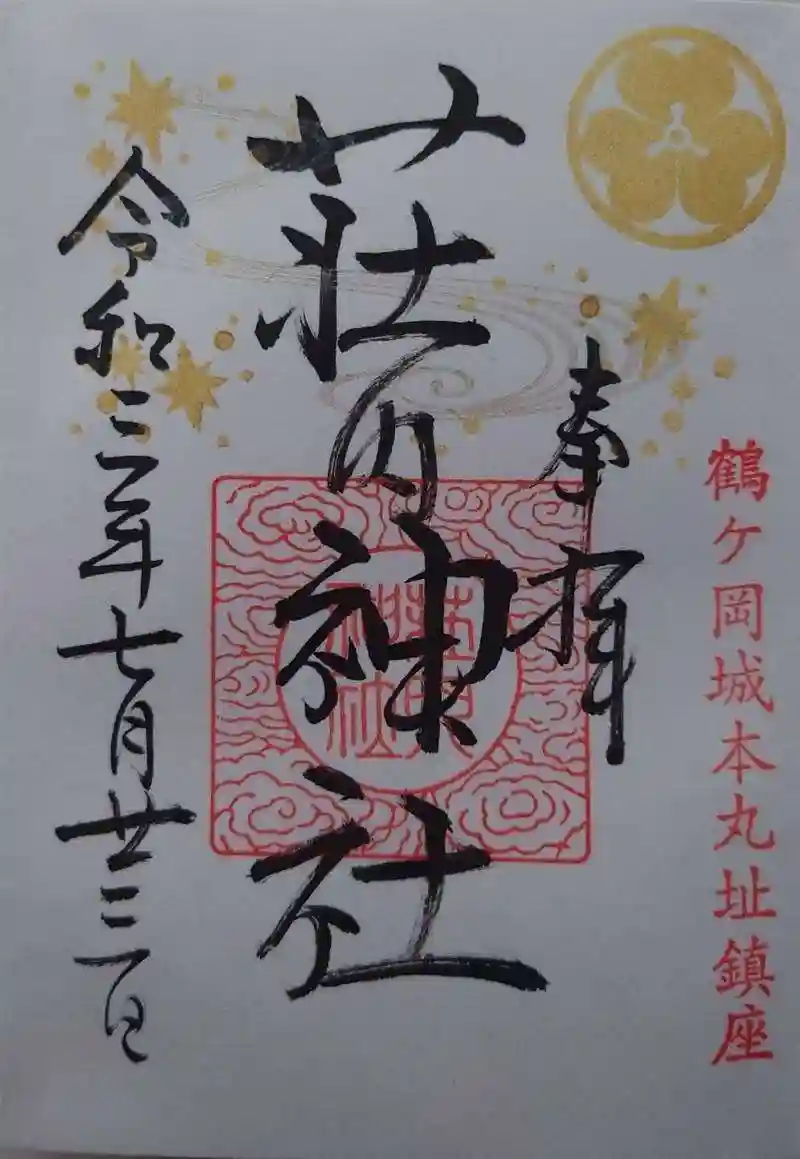 鶴ケ岡城本丸址鎮座
奉拝
荘内神社
荘内
神社
令和三年七月廿三日